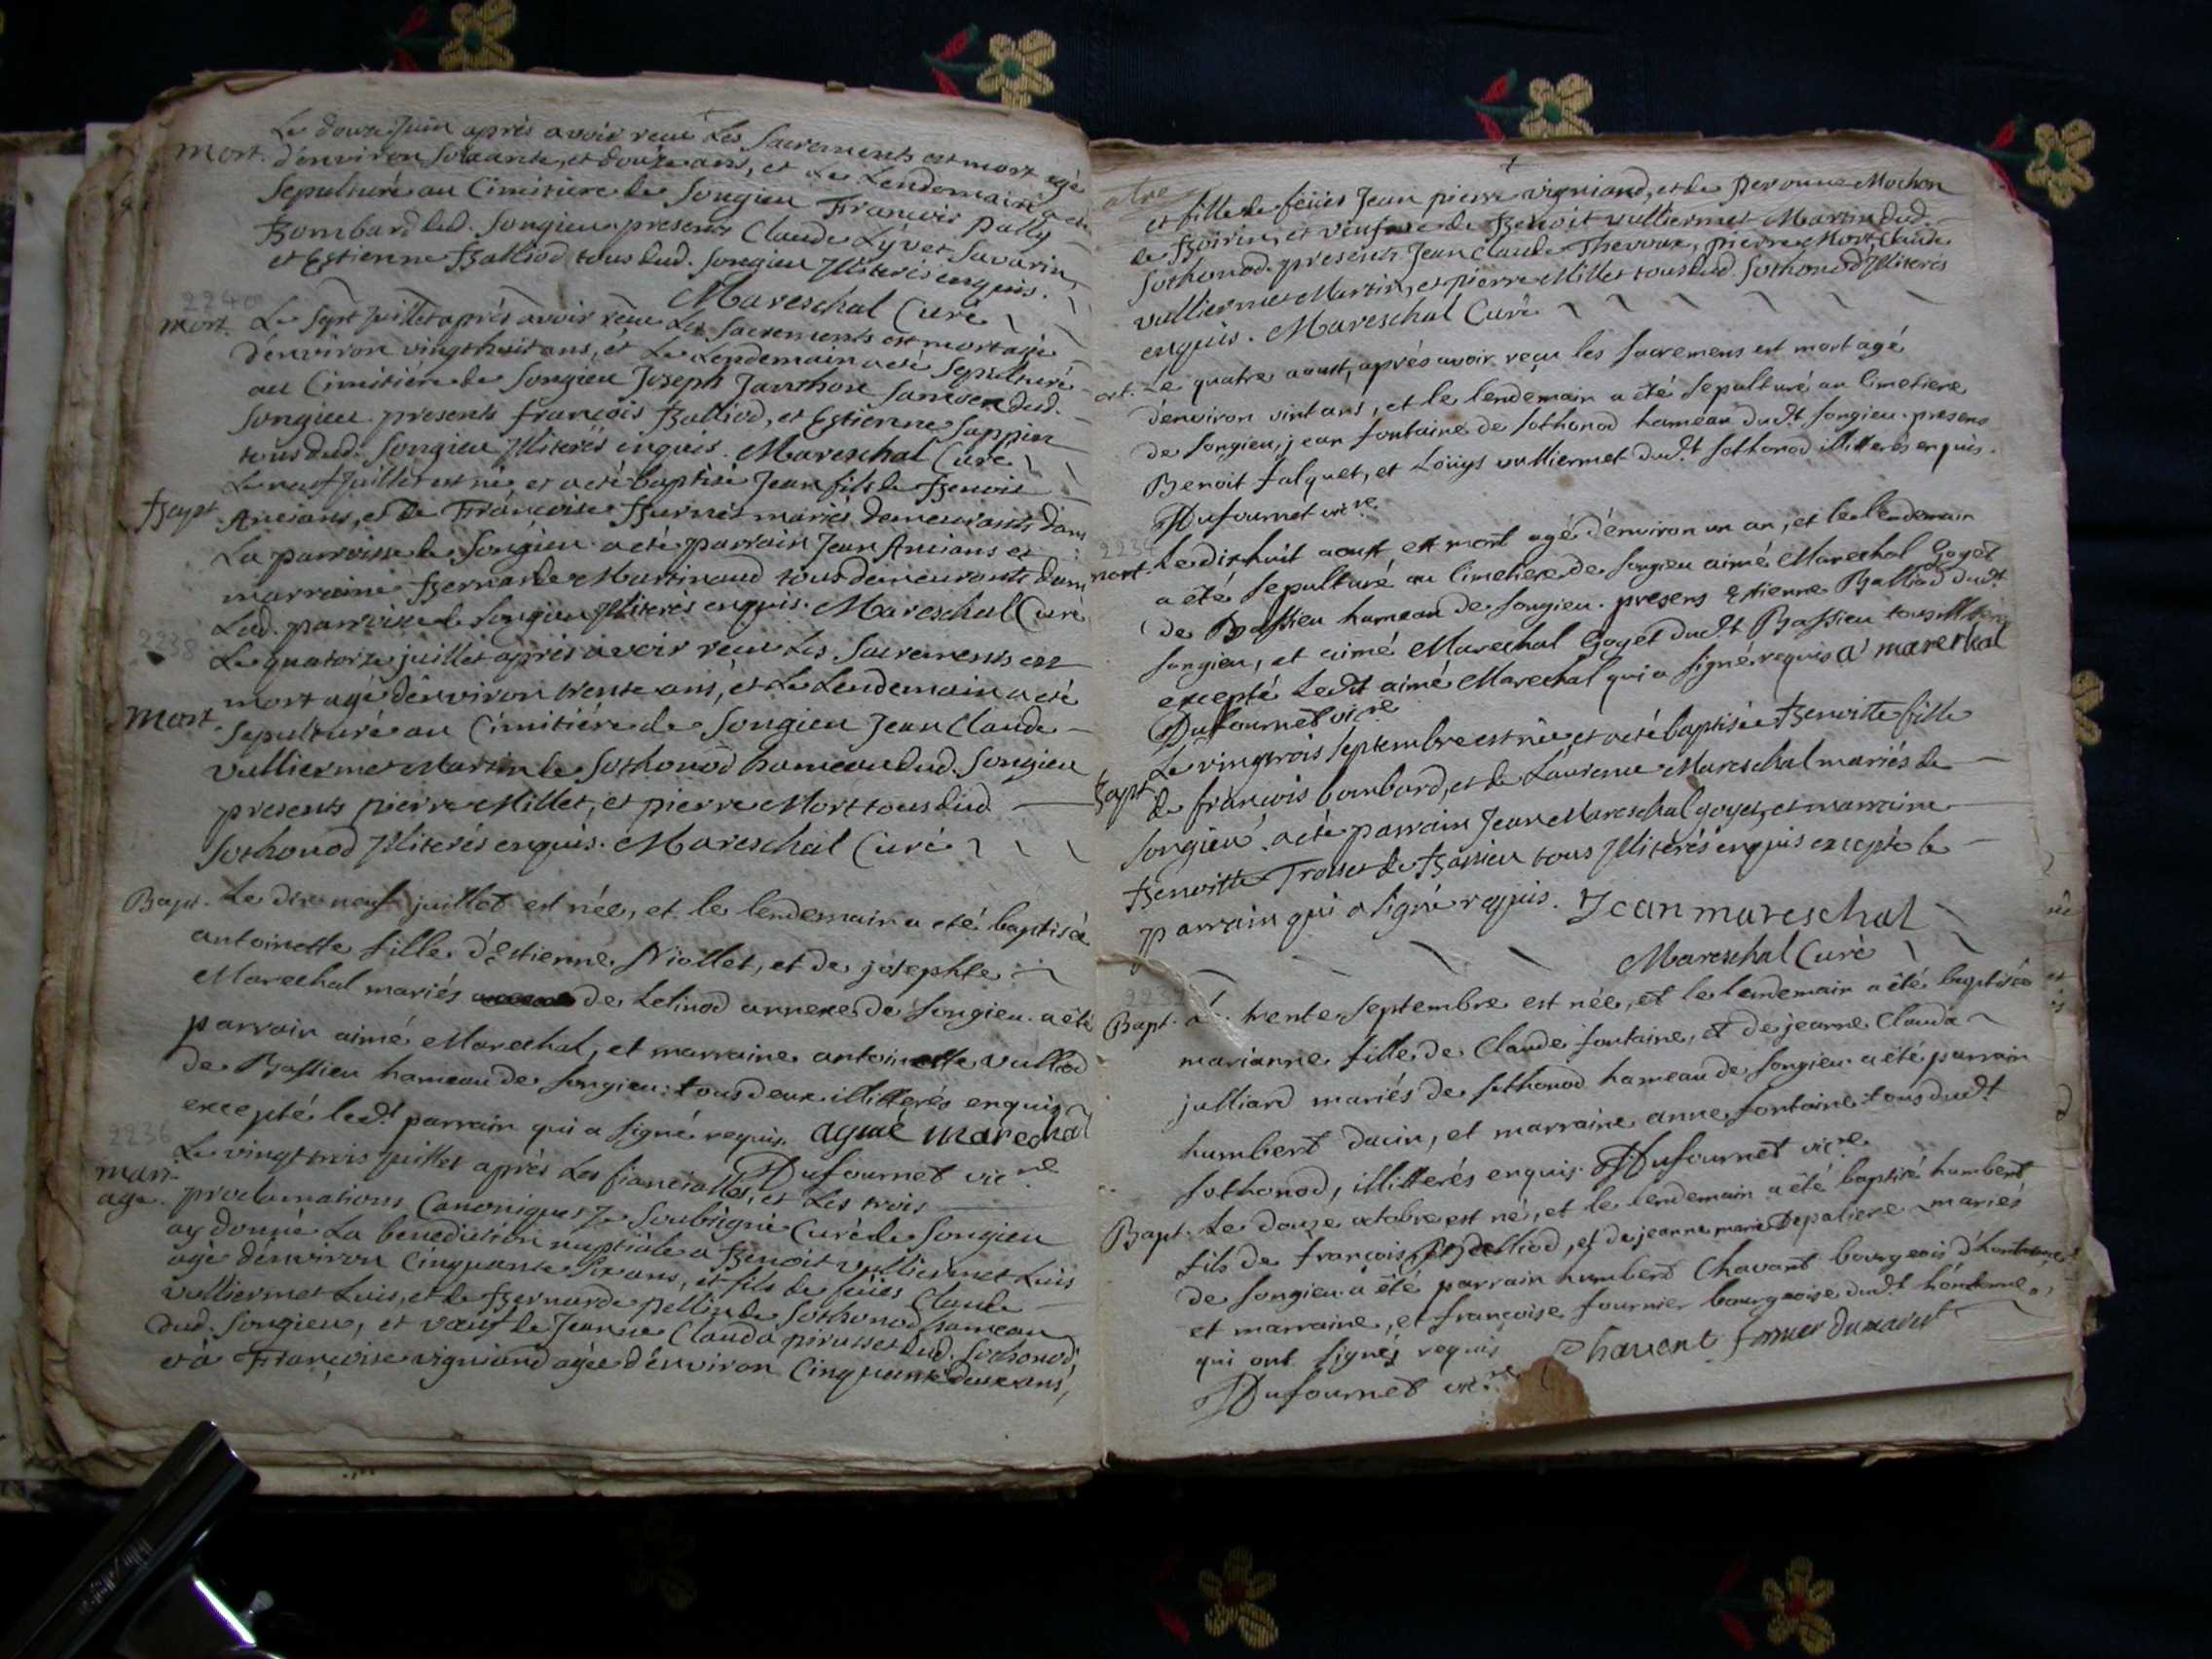 Le douze Juin après avoir reçu Les Sacrements est mort agé
Mort. d'environ soixante, et douze ans, et Le Lendemain a eté
Sepulturé au Cimitiere de Songieu François Pally
Bombard dud. Songieu presents Claude Lyvet Savarin,
et Estienne Balliod tous dud. Songieu Illiterés enquis.
Mareschal Curé
2240
mort. Le Sept Juillet après avoir reçu Les Sacrements est mort agé
d'environ vingt huit ans, et Le Lendemain a eté Sepulturé
au Cimitiere de Songieu Joseph Janthon dud.
Songieu presents françois Balliod, et Estienne Sappin
tous dud. Songieu Illiterés enquis. Mareschal Curé
Le neuf Juillet est né et a eté baptisé Jean fils de Benoit
Bapt. Ancians, et de Françoise Burnet mariés demeurants dans
La parroisse de Songieu a eté parrain Jean Ancians et
marraine Bernarde Martinaud tous demeurants dans
Lad. parroisse de Songieu Illiterés enquis. Mareschal Curé
2238
Le quatorze juillet après avoir reçu Les Sacrements est
mort agé d'environ trente ans, et Le Lendemain a eté
Mort. Sepulturé au Cimitiére de Songieu Jean Claude
Vulliermet Martin de Sothonod hameau dud. Songieu
presents pierre Millet, et pierre Mort tous dud.
Sothonod Illiterés enquis. Mareschal Curé
Bapt. Le dix neuf juillet est née, et le lendemain a eté baptisée
antoinette fille d'Estienne Niollet, et de josephte
Marechal mariés de Lelinod annexe de Songieu. a eté
parrain aimé Marechal, et marraine antoinette Vulliod
de Bassieu hameau de Songieu: tous deux illitterés enquis
excepté led.t parrain qui a signé requis. aymé marechal
Dufournet vic.re
2236
Le vingt trois Juillet après Les fiancialles, et Les trois
mari-
age. proclamations Canoniques Je Soubsigné Curé de Songieu
ay donné La benediction nuptiale a Benoit Vulliermet Luis
agé d'environ Cinquante Six ans, et fils de feües Claude
Vulliermet Luis, et de Bernarde pellin de Sothonod hameau
dud. Songieu, et vœuf de Jeanne Clauda pirusset dud. Sothonod
et à Françoise vigniand agée d'environ Cinquante deux ans,
et fille de feües Jean pierre vigniand, et de Peronne Mochon
de Boirin, et veufve de Benoit vulliermet Martin dud.
Sothonod. presents Jean Claude Thevoux, pierre Mort, Claude
vulliermet Martin, et pierre Millet tous dud. Sothonod Illiterés
enquis. Mareschal Curé
ort. Le quatre aoust, après avoir reçu les sacremens est mort agé
d'environ vint ans, et le lendemain a été sepulturé au Cimetiere
de Songieu, jean fontaine de sothonod hameau dud.t songieu. presens
Benoit falquet, et Loüys vulliermet dud.t sothonod illitterés enquis.
Dufournet vic.re
2234
mort. Le dixhuit aoust est mort agé d'environ un an, et le lendemain
a été sepulturé au Cimetiere de Songieu aimé Marechal Goyet
de Bassieu hameau de Songieu. presens Estienne Balliod dud.t
songieu, et aimé Marechal Goyet dud.t Bassieu tous illiterés
excepté led.t aimé Marechal qui a signé requis a marechal
Dufournet vic.re
Le vingtrois Septembre est née et a eté baptisée Benoitte fille
Bapt de françois bombard, et de Laurence Mareschal mariés de
Songieu. a eté parrain Jean Mareschal goyet, et marraine
Benoitte Trolset de Bassieu tous Illiterés enquis excepté le
parrain qui a signé requis. Jean mareschal
Mareschal Curé
2232
Bapt. Le trente Septembre est née, et le lendemain a été baptisée
marianne fille de Claude fontaine, et de jeanne Clauda
julliard mariés de sothonod hameau de songieu a été parrain
humbert ducin, et marraine anne fontaine tous dud.t
sothonod, illitterés enquis. Dufournet vic.re
Bapt. Le douze octobre est né, et le lendemain a été baptisé humbert
fils de françois Balliod, et de jeanne marie Depaliere mariés
de songieu a été parrain humbert Chavant bourgeois d'hontonne
et marraine, et françoise fournier bourgeoise dud.t hontonne,
qui ont signés requis Chavent
Dufournet vic.re